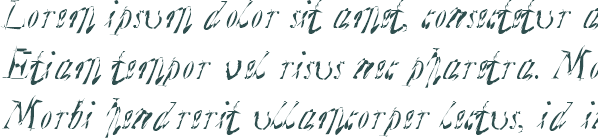 Lorem ipsum dolor sit amet, consectetur a
Etiam tempor vel risus nec pharetra. Mo
Morbi hendrerit ullamcorper lectus, id in